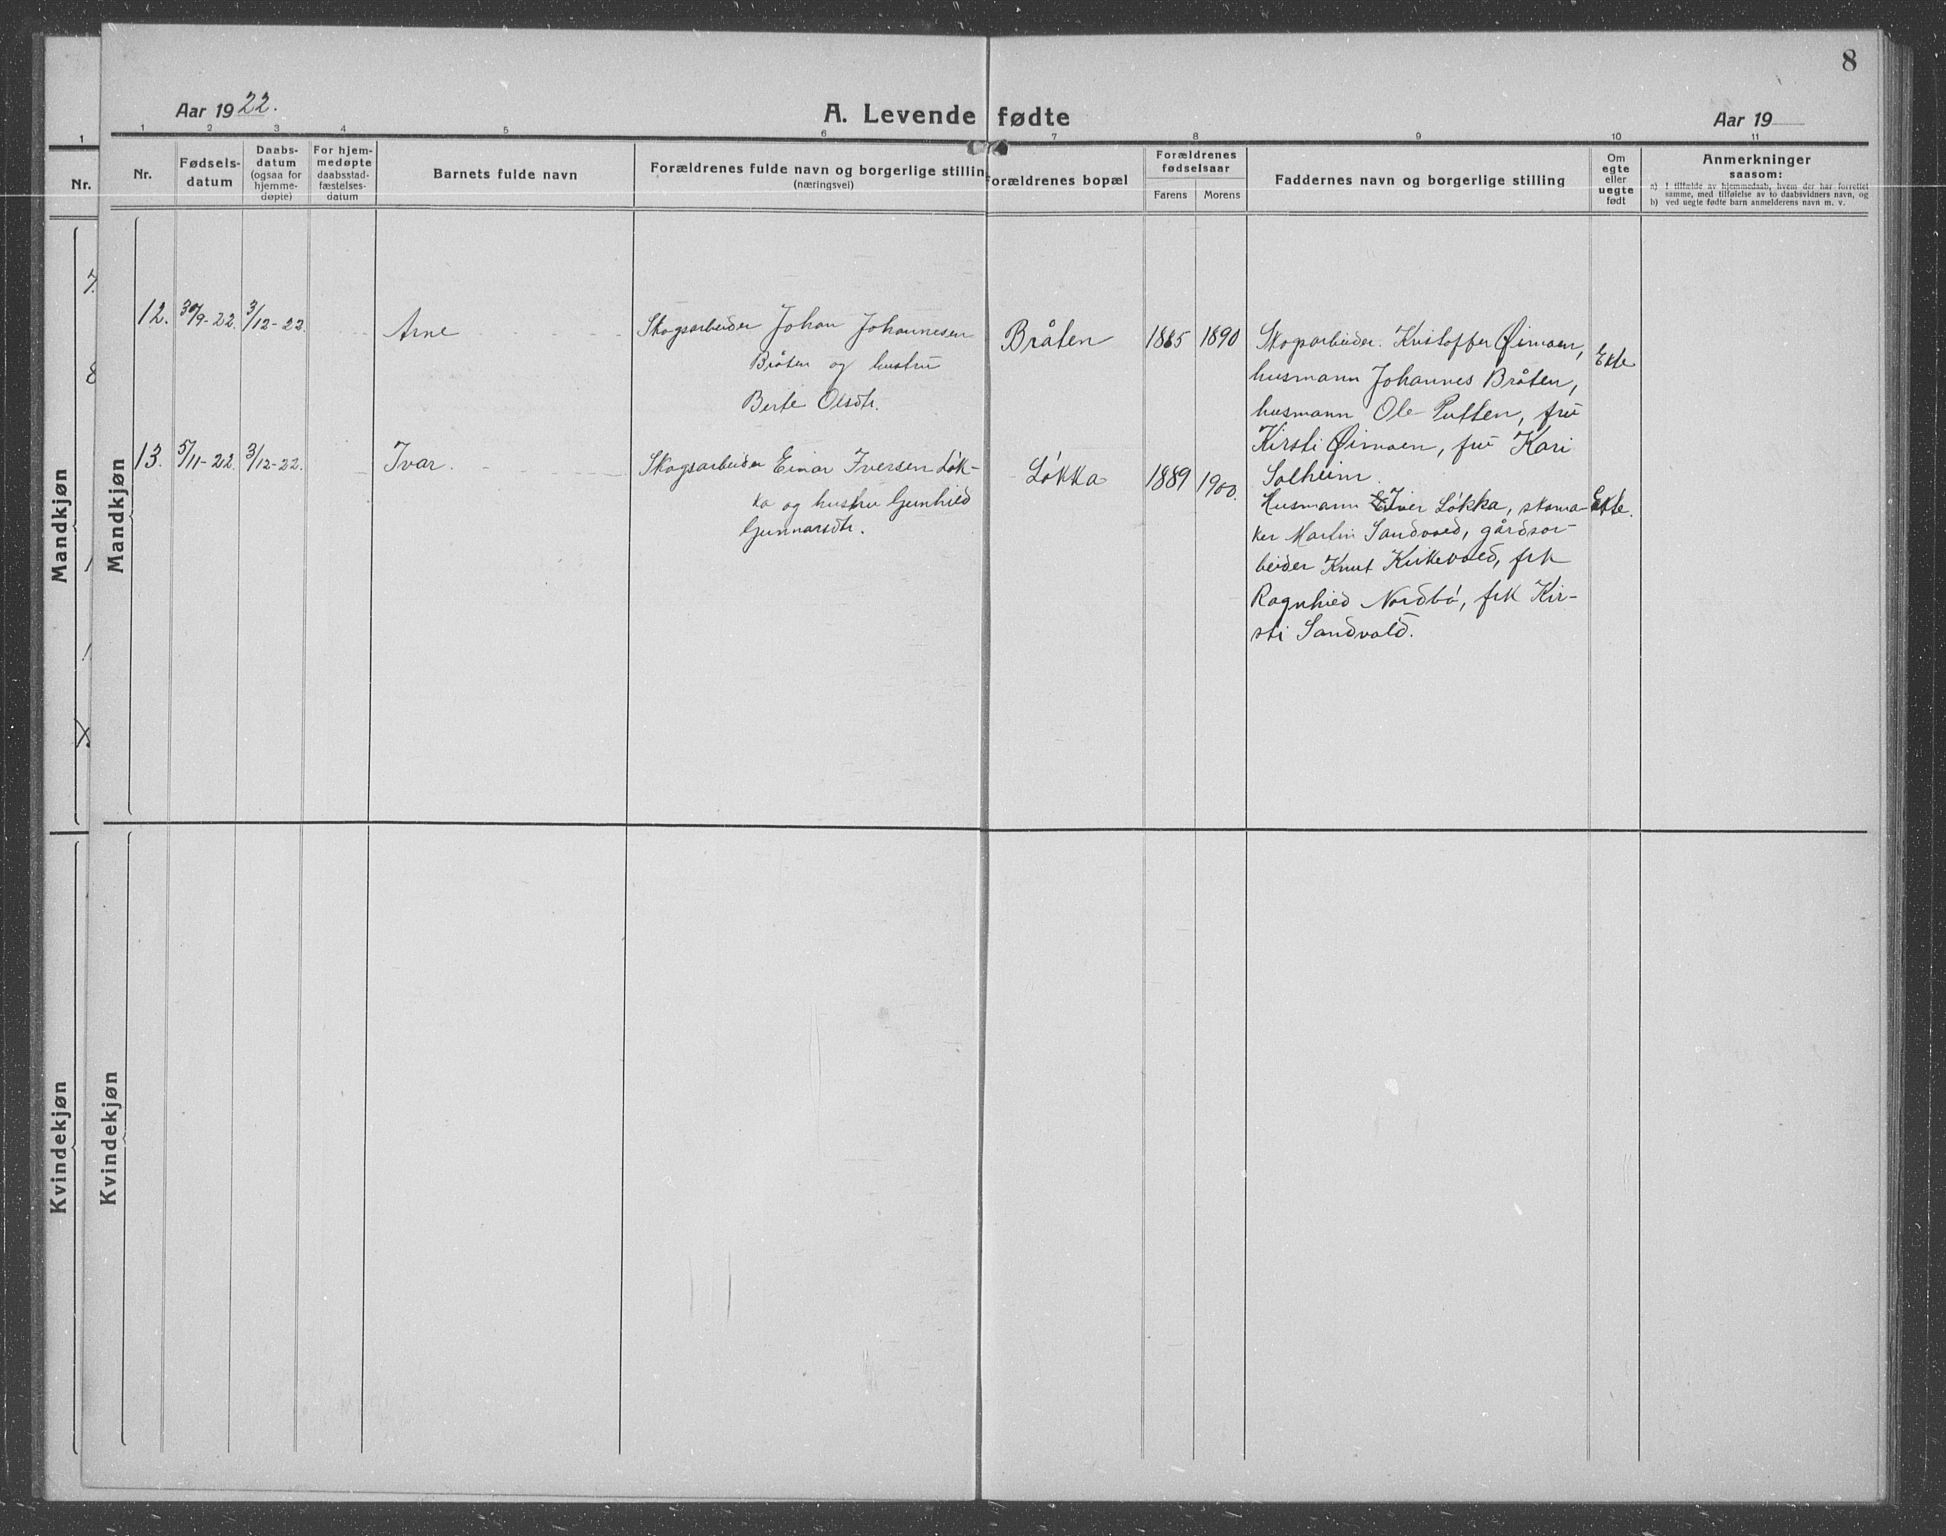 8
Aar 1922.
A. Levende fødte
Aar 19
1 2 3 4 5 6 7 8 9 10 11
1
Nr.
Nr.
Fødsels-
datum
Daabs-
datum
(ogsaa for
hjemme-
døpte)
For hjem-
medøpte
daabsstad-
fæstelses-
datum
Barnets fulde navn
Forældrenes fulde navn og borgerlige stillin
(næringsvei)
Forældrenes bopæl
Forældrenes
fødselsaar
Farens Morens
Faddernes navn og borgerlige stilling
Om
egte
eller
uegte
født
Anmerkninger
saasom:
a) I tilfælde av hjemmedaab, hvem der har forrettet
samme, med tilføielse av to daabsvidners navn, og
b) ved uegte fødte barn anmelderens navn m. v.
Mandkjøn
Mandkjøn
7.
8
12. 30/9-22. 3/12-22.
Arne
Skogsarbeider Johan Johannesen
Bråten og hustru
Berte Olsdtr.
Bråten
1885 1890
Skogarbeider. Kristoffer Øimoen,
husmann Johannes Bråten,
husmann Ole Putten, fru
Kirsti Øimoen, fru Kari
Solheim.
Ekte
13. 5/11-22. 3/12-22.
Ivar.
Skogsarbeider Einar Iversen Løk-
ka og hustru Gunhild
Gunnarsdtr.
Løkka
1889 1900.
Husmann Iver Løkka, skoma-
ker Martin Sandvold, gårdsar-
beider Knut Kirkevold, frk
Ragnhild Nordbø, frk Kir-
sti Sandvold.
Ekte.
Kvindekjøn
Kvindekjøn